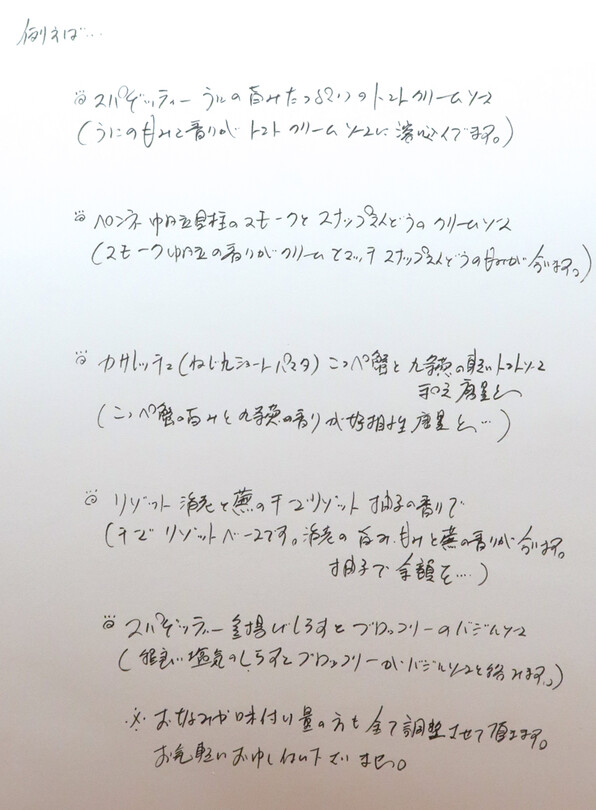 例えば…
スパゲッティー うにの旨みたっぷりのトマトクリームソース
(うにの甘みと香りがトマトクリームソースに溶け込んでます。)
ペンネ 帆立貝柱のスモークとスナップえんどうのクリームソース
(スモーク帆立の香りがクリームとマッチ スナップえんどうの甘みが合います。)
カサレッチェ(ねじれショートパスタ) こっペ蟹と九条葱の軽いトマトソース
和え 唐墨と
(こっペ蟹の旨みと九条葱の香りが好相性 唐墨と…)
リゾット 海老と蕪のチーズリゾット 柚子の香りで
(チーズリゾットベースです。海老の旨み、甘みと蕪の香りが合います。
柚子で
スパゲッティー 釜揚げしらすとブロッコリーのバジルソース
(程良い塩気のしらすとブロッコリーがバジルソースと絡みます。)
※ お好みや味付け量の方も全て調整させて頂きます。
お気軽にお申し付け下さいませ。